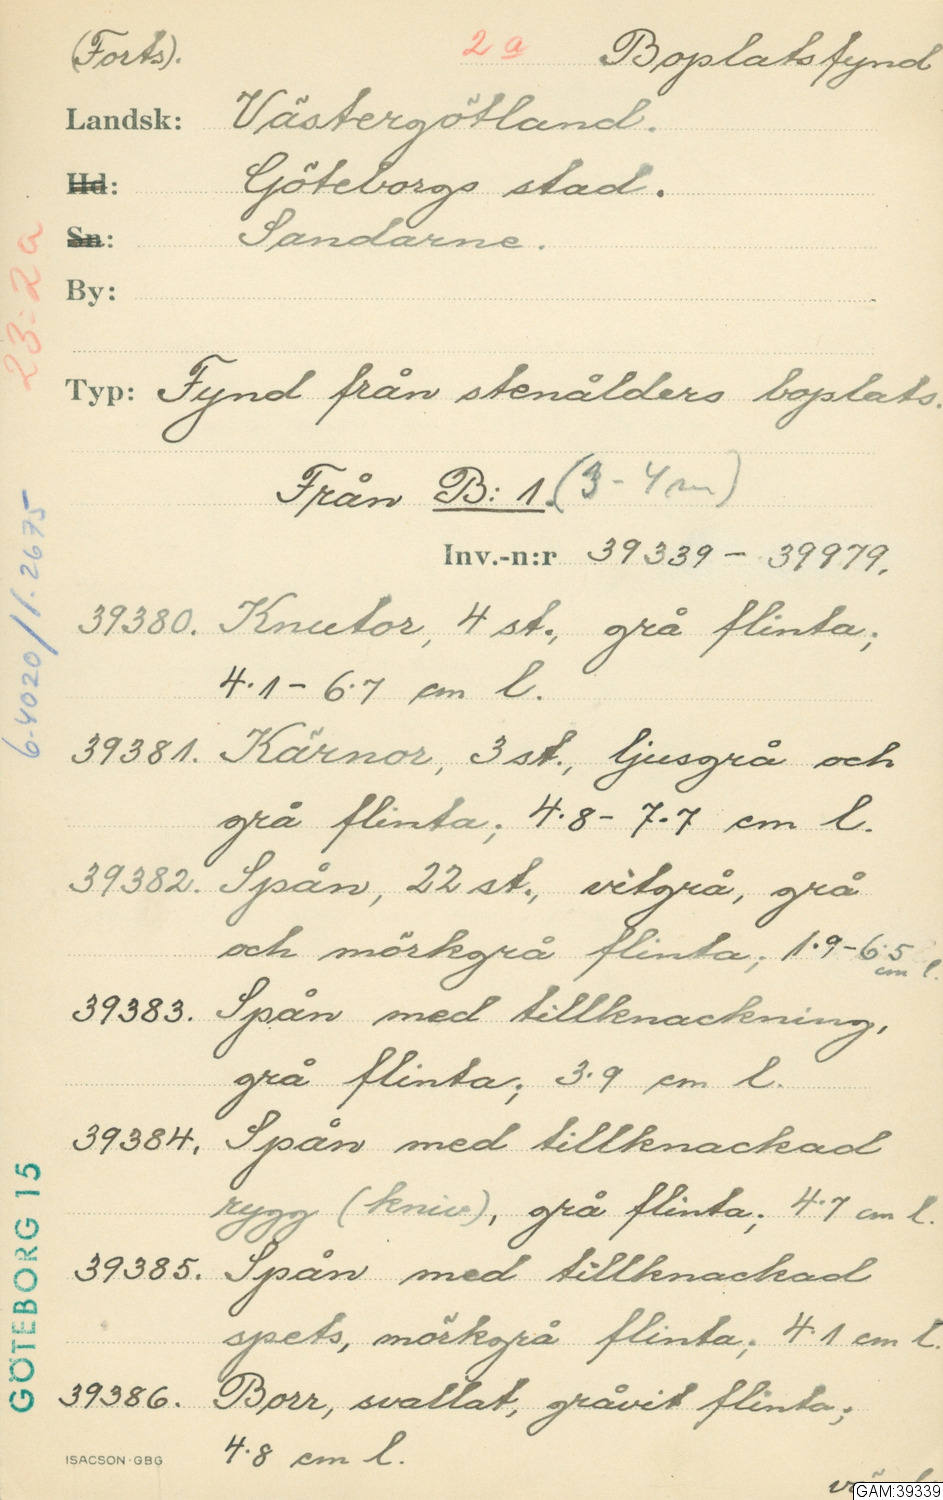 (Forts).
2 a
Boplatsfynd
Landsk: Västergötland.
Hd: Göteborgs stad.
Sn: Sandarne.
By:
Typ: Fynd från stenålders boplats.
Från B: 1. (3-4 m)
Inv.-n:r 39339 - 39979.
39380. Knutor, 4 st., grå flinta;
4.1 - 6.7 cm l.
39381. Kärnor, 3 st., ljusgrå och
grå flinta; 4.8 - 7.7 cm l.
39382. Spån, 22 st., vitgrå, grå
och mörkgrå flinta; 1.9 - 6.5 cm l.
39383. Spån med tillknackning,
grå flinta; 3.9 cm l.
39384. Spån med tillknackad
rygg (kniv), grå flinta; 4.7 cm l.
39385. Spån med tillknackad
spets, mörkgrå flinta; 4.1 cm l.
39386. Borr, svallat, gråvit flinta;
4.8 cm l.
ISACSON·GBG
GAM:39339
23:2a
6-4020/1.2675
GÖTEBORG 15